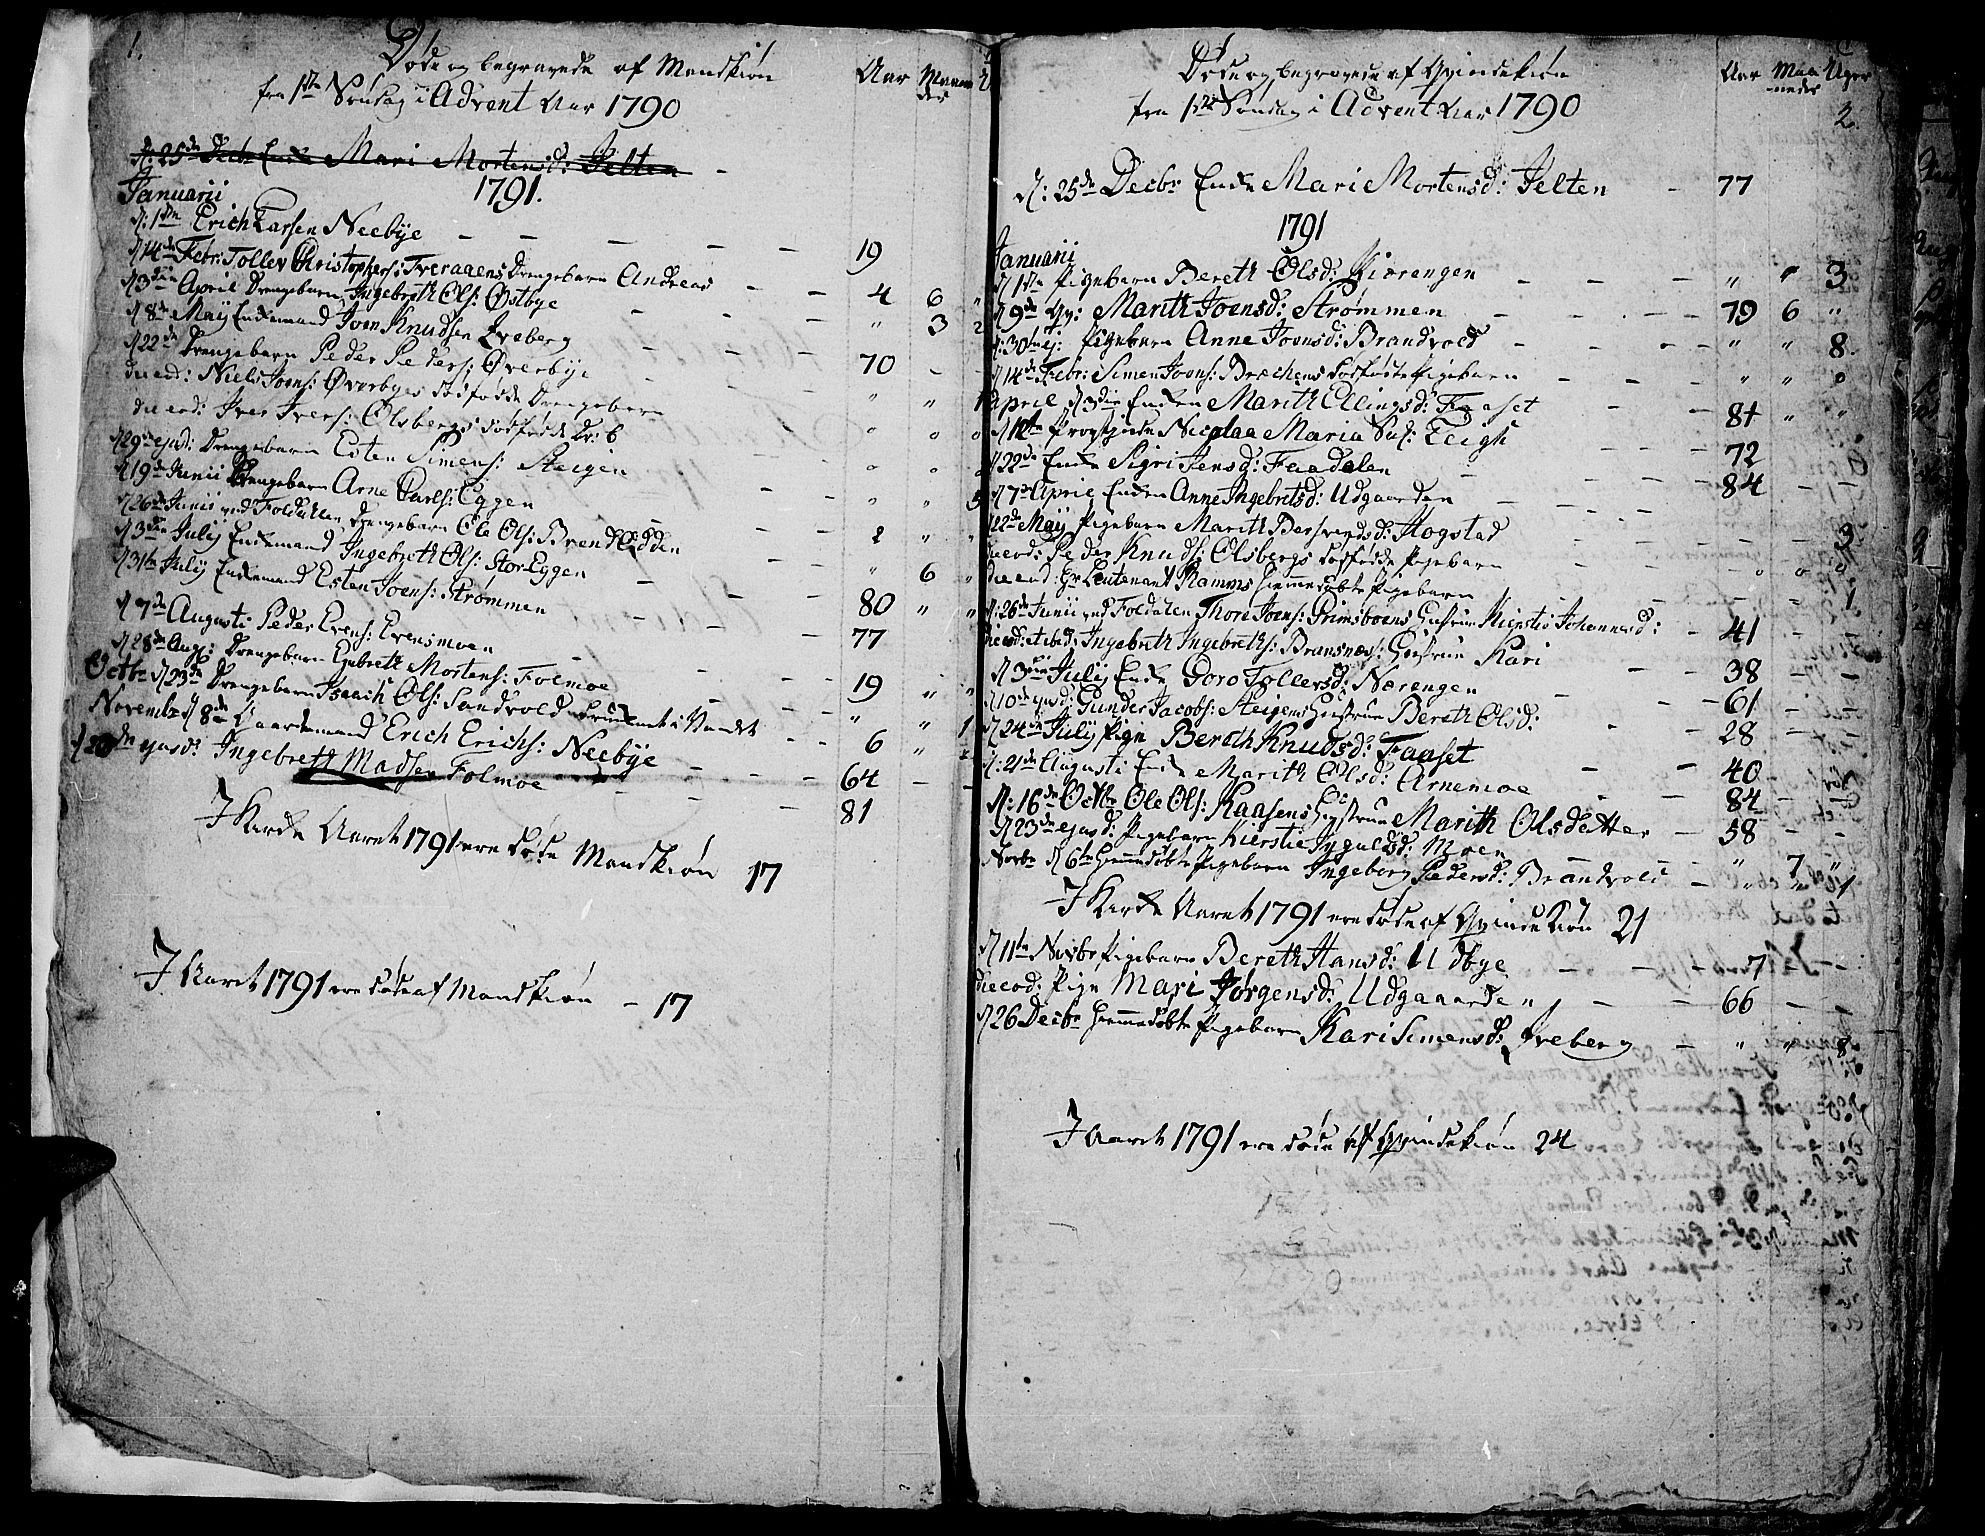 1.
Døde og begravede af Mandkiøn
fra 1ste Søndag i Advent Aar 1790
Aar Maaneder
d: 25de Decbr Enke Mari Mortensd: Jelten
1791.
Januarii
d: 1ste Erich Larsen Neebye — — — — — 19
d 14de Febr: Tollev Christophers: Treraaens Drengebarn Andreas — — 4 6 "
d 3die April Drengebarn Ingebreth Ols: Østbye — — — " 3 2
d 8de Maij Enkemand Joen Knudsen Lreberg — — — 70 — —
d 22de Drengebarn Peder Peders: Øverbye — " " 1
die eod: Niels Joens: Øverbyes dødfødde Drengebarn o o o
die eod: Iver Ivers: Olsbergs dødfødde Dr: b o o
d 29de ejusd: Drengebarn Esten Simens: Steigen — — " " 5
d 19de Junii Drengebarn Arne Carls: Eggen — — 2 " "
d 26de Junii ved Foldahlen Drengebarn Ole Ols: Brendlødden " 6 "
d 3die Julij Enkemand Ingebreth Ols: Stor-Eggen — — 80 " "
d 31te Julij Enkemand Esten Joens: Strømmen — — 77
d 7de Augusti Peder Evens: Evensmoen — — — 19 " "
d 28de Aug: Drengebarn Engebreth Mortens: Folmoe — — " " 1
Octbr d 23de Drengebarn Isaach Ols: Sandvold druknet i Vandet — — 6 "
Novembr d 8de Gaardmand Erich Erichs: Neebye — — — 64 — —
d 20de ejusd: Ingebreth Madsen Folmoe — — — 81
I Kirke Aaret 1791 ere døde Mandkiøn 17
I Aaret 1791 ere døde af Mandkiøn — 17
Døde og begravede af Qvindekiøn
fra 1ste Søndag i Advent Aar 1790
Aar Maaneder Uger
2.
d: 25de Decbr Enke Mari Mortensd: Jelten — 77
1791
Januarii
d 1ste Pigebarn Bereth Olsd: Kiærengen — — — " " 3
d 9de Qv: Marith Joensd: Strømmen — — — 79 6 "
d: 30te ej: Pigebarn Anne Joensd: Brandvold — — — " " 8.
d 14de Febr: Simen Joens: Bræchens dødfødte Pigebarn — — — " " o
April d 3die Enken Marith Ellingsd: Faaset — — 81 " "
d 12te Provstinde Nicolaa Maria Sal: Feigh — — — 72
d 22de Enke Sigri Jensd: Faadalen — — — 84 — —
d 7de April Enken Anne Ingebretsd: Udgaarden — — —
d 22de Maij Pigebarn Marith Berfvendsd: Hogstad — — — 3
die eod: Peder Knuds: Olsbergs dødfødde Pigebarn — — o o o
die eod: Hr Lieutenant Ramms Hiemmedøbte Pigebarn — — 1
d: 26de Junii ved Foldalen Thore Joens: Grimsboens Hustrue Kierstie Johannesd: — 41 — —
die eod: ibid: Ingebreth Ingebreths: Bransnæs: Hustrue Kari — — 38 — —
d 3die Julij Enke Goro Tollevsd: Nærengen — — 61 — —
d 10de ejusd: Gunder Jacobs: Steigens Hustrue Bereth Olsd: — 28 — —
d 24de Julij Pige Bereth Knudsd: Faaset — — 40 — —
d: 21de Augusti Enke Marith Olsd: Arnemoe — — 84 — —
d: 16de Octbr Ole Ols: Kaasens Hustrue Marith Olsdatter — 58 — —
d 23de ejusd: Pigebarn Kierstie Sygulsd: Moen — " 7 "
Novbr d 6te Hiemmedøbte Pigebarn Ingeborg Pedersd: Brandvold — " " 1
I Kirke Aaret 1791 ere døde af Qvindekiøn 21
d 11te Novbr Pigebarn Bereth Hansd: Udbye — — — 7 — —
die eod: Pige Mari Jørgensd: Udgaarden — — 66 — —
d 26 Decbr Hiemmedøbte Pigebarn Kari Simensd: Ireberg — " " 8
I Aaret 1791 ere døde af Qvindekiøn 24